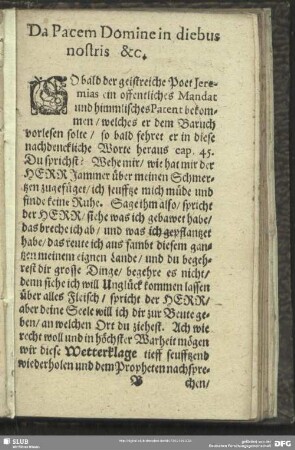 Da Pacem Domine in diebus
nostris &c.
SO bald der geistreiche Poet Jere-
mias ein offentliches Mandat
und himmlisches Patent bekom-
men/ welches er dem Baruch
vorlesen solte/ so bald fehret er in diese
nachdenckliche Worte heraus cap. 45.
Du sprichst: Wehe mir/ wie hat mir der
HERR Jammer über meinen Schmer-
tzen zugefüget/ ich seufftze mich müde und
finde keine Ruhe. Sage ihm also/ spricht
der HERR/ siehe was ich gebawet habe/
das breche ich ab/ und was ich gepflantzet
habe/ das reute ich aus sambt diesem gan-
tzen meinem eignen Lande/ und du begeh-
rest dir grosse Dinge/ begehre es nicht/
denn siehe ich will Unglück kommen lassen
über alles Fleisch/ spricht der HERR/
aber deine Seele will ich dir zur Beute ge-
ben/ an welchen Ort du ziehest. Ach wie
recht woll und in höchster Warheit mögen
wir diese Wetterklage tieff seufftzend
wiederholen und dem Propheten nachspre-
B chen/
SLUB
DFG